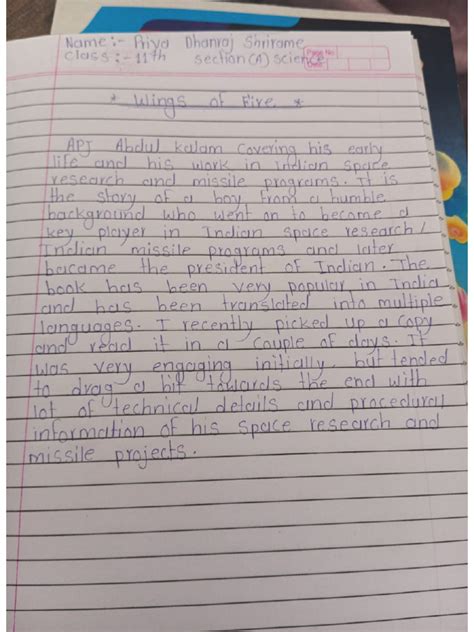 Name:- Priya Dhanraj Shrirame
Class:- 11th section (A) science
Page No.
Date
* Wings of Fire *
APJ Abdul kalam Covering his early
life and his work in indian space
research and missile programs. It is
the story of a boy from a humble
background who went on to become a
key player in Indian space research/
Indian missile programs and later
bacame the president of Indian. The
book has been very popular in India
and has been translated into multiple
languages. I recently picked up a Copy
and read it in a Couple of days. It
was very engaging initially, but tended
to drag a bit towards the end with
lot of technical details and procedural
information of his space research and
missile projects.